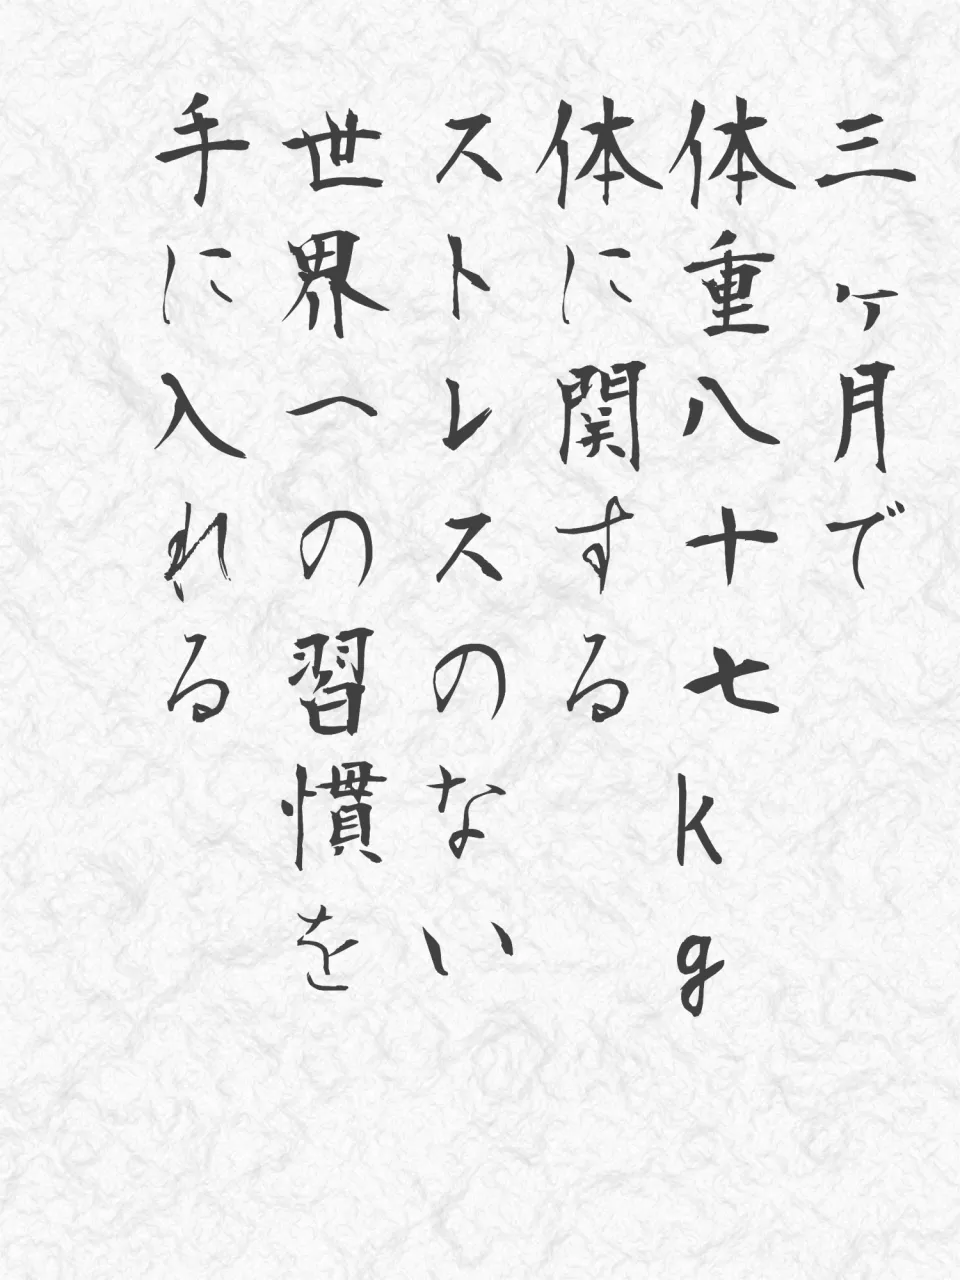 三ヶ月で
体重八十七kg
体に関する
ストレスのない
世界への習慣を
手に入れる